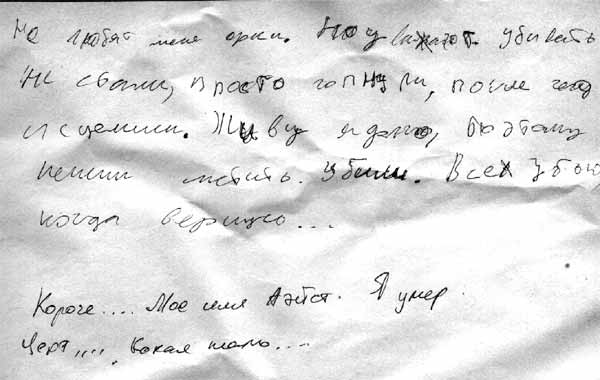 Не любят меня орки. Но уважают. убивать
не стали, просто гопнули, после чего
исцелили. Живу я давно, поэтому
мстить. Убили. Всех убью,
когда вернусь...
Короче.... Мое имя Аэйст. Я умер.
Черт,,,, Какая жаль....